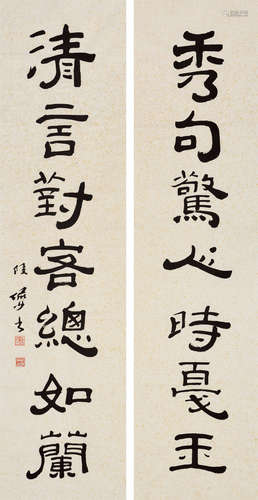 秀句驚心時戛玉
清言對客總如蘭